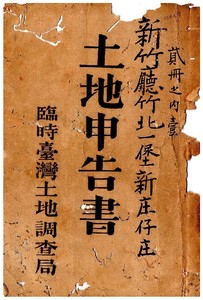 貳冊之内壹
新竹廳竹北一堡新庄仔庄
土地申告書
臨時臺灣土地調查局